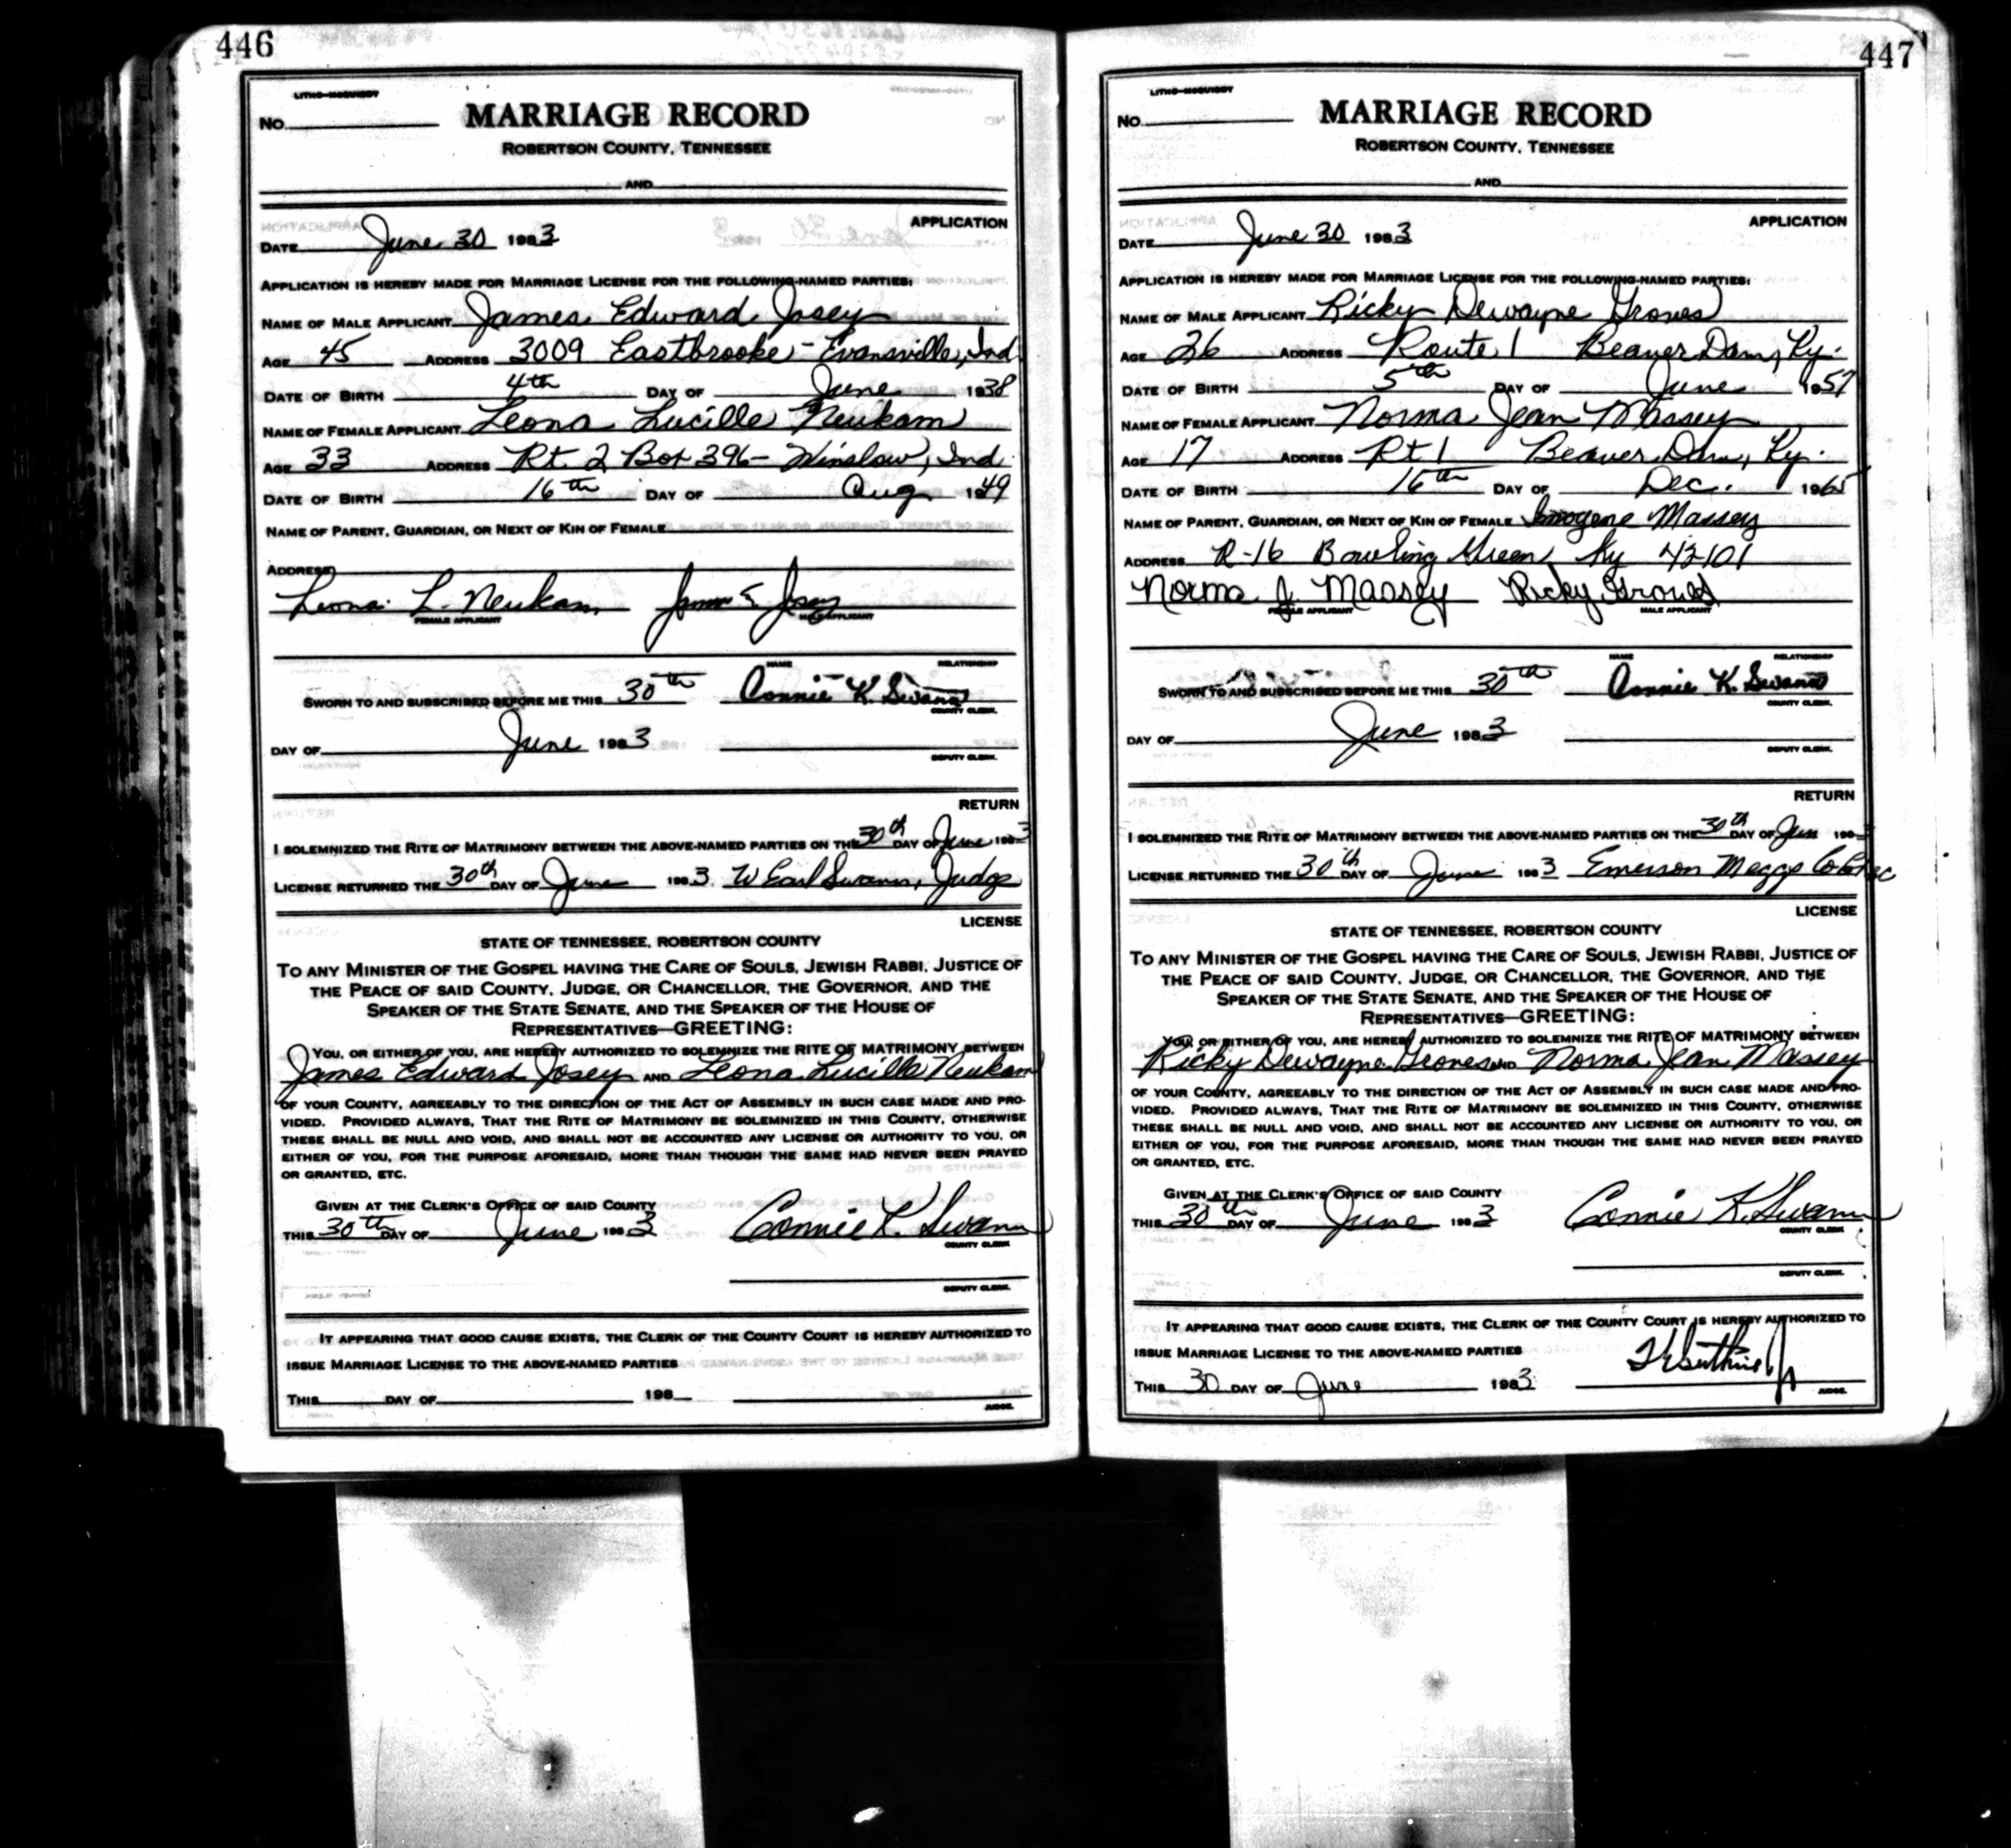 446
LITHO-MCQUIDDY
No.
MARRIAGE RECORD
ROBERTSON COUNTY, TENNESSEE
AND
APPLICATION
DATE June 30 1983
APPLICATION IS HEREBY MADE FOR MARRIAGE LICENSE FOR THE FOLLOWING-NAMED PARTIES:
NAME OF MALE APPLICANT James Edward Josey
AGE 45 ADDRESS 3009 Eastbrooke - Evansville, Ind
DATE OF BIRTH 4th DAY OF June 1938
NAME OF FEMALE APPLICANT Leona Lucille Neukam
AGE 33 ADDRESS Rt. 2 Box 396 - Winslow, Ind.
DATE OF BIRTH 16th DAY OF Aug. 1949
NAME OF PARENT, GUARDIAN, OR NEXT OF KIN OF FEMALE
ADDRESS
Leona L. Neukam James E Josey
FEMALE APPLICANT MALE APPLICANT
NAME RELATIONSHIP
SWORN TO AND SUBSCRIBED BEFORE ME THIS 30th Connie K. Swann
COUNTY CLERK.
DAY OF June 1983
DEPUTY CLERK.
RETURN
I SOLEMNIZED THE RITE OF MATRIMONY BETWEEN THE ABOVE-NAMED PARTIES ON THE 30th DAY OF June 1983
LICENSE RETURNED THE 30th DAY OF June 1983. W Earl Swann, Judge
LICENSE
STATE OF TENNESSEE, ROBERTSON COUNTY
TO ANY MINISTER OF THE GOSPEL HAVING THE CARE OF SOULS, JEWISH RABBI, JUSTICE OF
THE PEACE OF SAID COUNTY, JUDGE, OR CHANCELLOR, THE GOVERNOR, AND THE
SPEAKER OF THE STATE SENATE, AND THE SPEAKER OF THE HOUSE OF
REPRESENTATIVES—GREETING:
YOU, OR EITHER OF YOU, ARE HEREBY AUTHORIZED TO SOLEMNIZE THE RITE OF MATRIMONY BETWEEN
James Edward Josey AND Leona Lucille Neukam
OF YOUR COUNTY, AGREEABLY TO THE DIRECTION OF THE ACT OF ASSEMBLY IN SUCH CASE MADE AND PRO-
VIDED. PROVIDED ALWAYS, THAT THE RITE OF MATRIMONY BE SOLEMNIZED IN THIS COUNTY, OTHERWISE
THESE SHALL BE NULL AND VOID, AND SHALL NOT BE ACCOUNTED ANY LICENSE OR AUTHORITY TO YOU, OR
EITHER OF YOU, FOR THE PURPOSE AFORESAID, MORE THAN THOUGH THE SAME HAD NEVER BEEN PRAYED
OR GRANTED, ETC.
GIVEN AT THE CLERK'S OFFICE OF SAID COUNTY
THIS 30th DAY OF June, 1983 Connie K. Swann
COUNTY CLERK
DEPUTY CLERK.
IT APPEARING THAT GOOD CAUSE EXISTS, THE CLERK OF THE COUNTY COURT IS HEREBY AUTHORIZED TO
ISSUE MARRIAGE LICENSE TO THE ABOVE-NAMED PARTIES
THIS DAY OF 198
JUDGE.
447
LITHO-MCQUIDDY
No.
MARRIAGE RECORD
ROBERTSON COUNTY, TENNESSEE
AND
APPLICATION
DATE June 30 1983
APPLICATION IS HEREBY MADE FOR MARRIAGE LICENSE FOR THE FOLLOWING-NAMED PARTIES:
NAME OF MALE APPLICANT Ricky Dewayne Groves
AGE 26 ADDRESS Route 1 Beaver Dam, Ky.
DATE OF BIRTH 5th DAY OF June 1957
NAME OF FEMALE APPLICANT Norma Jean Massey
AGE 17 ADDRESS Rt 1 Beaver Dam, Ky.
DATE OF BIRTH 16th DAY OF Dec. 1965
NAME OF PARENT, GUARDIAN, OR NEXT OF KIN OF FEMALE Imogene Massey
ADDRESS R-16 Bowling Green, Ky 42101
Norma J. Massey Ricky Groves
FEMALE APPLICANT MALE APPLICANT
NAME RELATIONSHIP
SWORN TO AND SUBSCRIBED BEFORE ME THIS 30th Connie K. Swann
COUNTY CLERK.
DAY OF June 1983
DEPUTY CLERK.
RETURN
I SOLEMNIZED THE RITE OF MATRIMONY BETWEEN THE ABOVE-NAMED PARTIES ON THE 30th DAY OF Jun 1983
LICENSE RETURNED THE 30th DAY OF June 1983 Emerson Meggs
LICENSE
STATE OF TENNESSEE, ROBERTSON COUNTY
TO ANY MINISTER OF THE GOSPEL HAVING THE CARE OF SOULS, JEWISH RABBI, JUSTICE OF
THE PEACE OF SAID COUNTY, JUDGE, OR CHANCELLOR, THE GOVERNOR, AND THE
SPEAKER OF THE STATE SENATE, AND THE SPEAKER OF THE HOUSE OF
REPRESENTATIVES—GREETING:
YOU, OR EITHER OF YOU, ARE HEREBY AUTHORIZED TO SOLEMNIZE THE RITE OF MATRIMONY BETWEEN
Ricky Dewayne Groves AND Norma Jean Massey
OF YOUR COUNTY, AGREEABLY TO THE DIRECTION OF THE ACT OF ASSEMBLY IN SUCH CASE MADE AND PRO-
VIDED. PROVIDED ALWAYS, THAT THE RITE OF MATRIMONY BE SOLEMNIZED IN THIS COUNTY, OTHERWISE
THESE SHALL BE NULL AND VOID, AND SHALL NOT BE ACCOUNTED ANY LICENSE OR AUTHORITY TO YOU, OR
EITHER OF YOU, FOR THE PURPOSE AFORESAID, MORE THAN THOUGH THE SAME HAD NEVER BEEN PRAYED
OR GRANTED, ETC.
GIVEN AT THE CLERK'S OFFICE OF SAID COUNTY
THIS 30th DAY OF June 1983 Connie K. Swann
COUNTY CLERK
DEPUTY CLERK.
IT APPEARING THAT GOOD CAUSE EXISTS, THE CLERK OF THE COUNTY COURT IS HEREBY AUTHORIZED TO
ISSUE MARRIAGE LICENSE TO THE ABOVE-NAMED PARTIES
THIS 30 DAY OF June 1983
JUDGE.